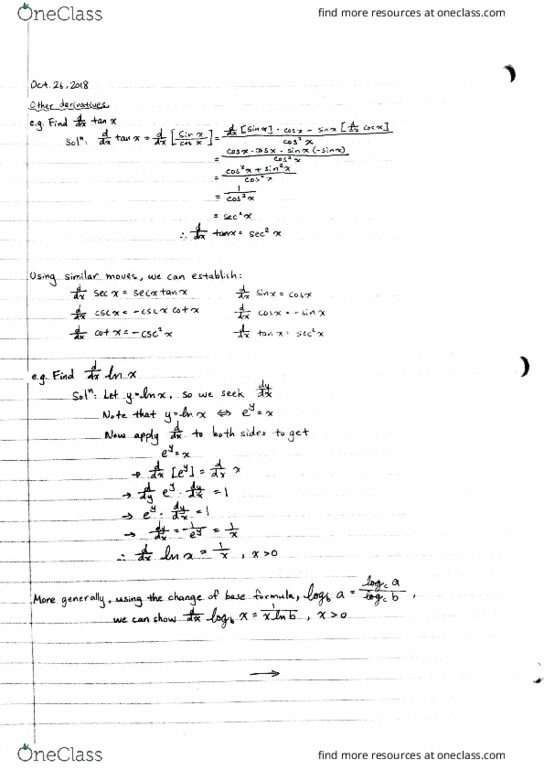 OneClass find more resources at oneclass.com
Oct. 26, 2018
Other derivatives
e.g. Find d/dx tan x
Sol^n: d/dx tan x = d/dx [sin x / cos x] = (d/dx [sin x] · cos x − sin x [d/dx cos x]) / cos² x
= (cos x · cos x − sin x (−sin x)) / cos² x
= (cos² x + sin² x) / cos² x
= 1 / cos² x
= sec² x
∴ d/dx tan x = sec² x
Using similar moves, we can establish:
d/dx sec x = sec x tan x d/dx sin x = cos x
d/dx csc x = −csc x cot x d/dx cos x = −sin x
d/dx cot x = −csc² x d/dx tan x = sec² x
e.g. Find d/dx ln x
Sol^n: Let y = ln x, so we seek dy/dx
Note that y = ln x ⇔ e^y = x
Now apply d/dx to both sides to get
e^y = x
→ d/dx [e^y] = d/dx x
→ d/dy e^y · dy/dx = 1
→ e^y · dy/dx = 1
→ dy/dx = 1/e^y = 1/x
∴ d/dx ln x = 1/x, x > 0
More generally, using the change of base formula, log_b a = log_c a / log_c b,
we can show d/dx log_b x = 1 / (x ln b), x > 0
→
OneClass find more resources at oneclass.com